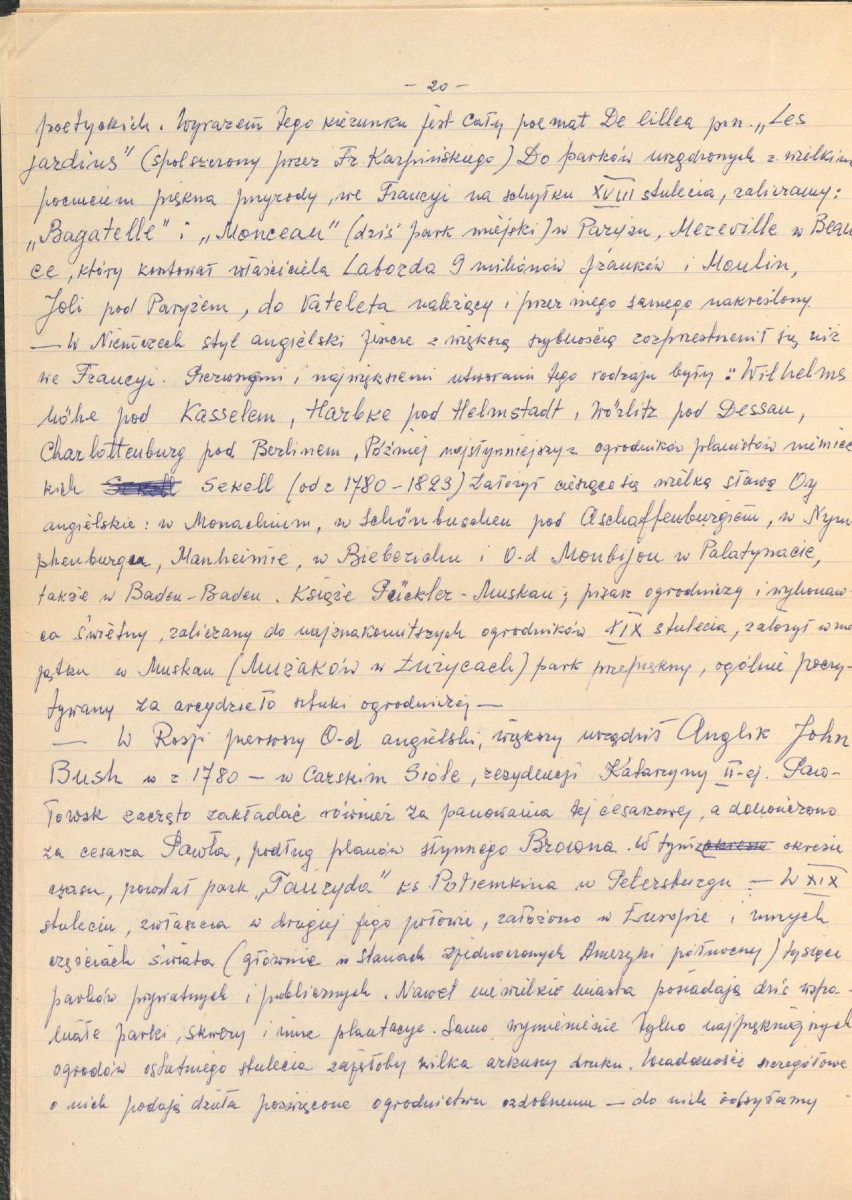 - 20 -
poetyckich. Wyrazem tego kierunku jest cały poemat De lillea p.n. „Les
jardins" (spolszczony przez Fr. Karpińskiego) Do parków urządzonych z wielkim
poczuciem piękna przyrody, we Francyi na schyłku XVIII stulecia, zaliczamy:
„Bagatelle" i „Monceau" (dziś park miejski) w Paryżu, Mereville w Beau
ce, który kosztował właściciela Laborda 9 milionów franków i Moulin,
Joli pod Paryżem, do Vateleta należący i przez niego samego nakreślony
— W Niemczech styl angielski jeszcze z większą szybkością rozprzestrzenił się niż
we Francyi. Pierwszymi i największemi utworami tego rodzaju były: Wilhelms
höhe pod Kasselem, Harbke pod Helmstadt, Wörlitz pod Dessau,
Charlottenburg pod Berlinem, Później najsłynniejszy z ogrodników planistów niemiec
kich Sckell (od r 1780 - 1823) założył cieszące się wielką sławą O-y
angielskie: w Monachium, w Schönbuschen pod Aschaffenburgiem, w Nym
phenburgu, Manheimie, w Bieberichu i O-d Monbijou w Palatynacie,
także w Baden-Baden. Książe Pückler-Muskau; pisarz ogrodniczy i wykonaw-
ca świetny, zaliczany do najznakomitszych ogrodników XIX stulecia, założył w ma
jątku w Muskau (Mużaków w Łużycach) park przepiękny, ogólnie poczy-
tywany za arcydzieło sztuki ogrodniczej —
— W Rosji pierwszy O-d angielski, większy urządził Anglik John
Bush w r 1780 — w Carskim Siole, rezydencji Katarzyny II-ej. Paw-
łowsk zaczęto zakładać również za panowania tej cesarzowej, a dokończono
za cesarza Pawła, podług planów słynnego Browna. W tymże okresie
czasu, powstał park „Tauryda" ks Potiemkina w Petersburgu — W XIX
stuleciu, zwłaszcza w drugiej jego połowie, założono w Europie i innych
częściach świata (głównie w Stanach Zjednoczonych Ameryki północnej) tysiące
parków prywatnych i publicznych. Nawet niewielkie miasta posiadają dziś wspa-
niałe parki, skwery i inne plantacye. Samo wymienienie tylko najpiękniejszych
ogrodów ostatniego stulecia zajęłoby kilka arkuszy druku. Wiadomości szczegółowe
o nich podają dzieła poświęcone ogrodnictwu ozdobnemu — do nich odsyłamy